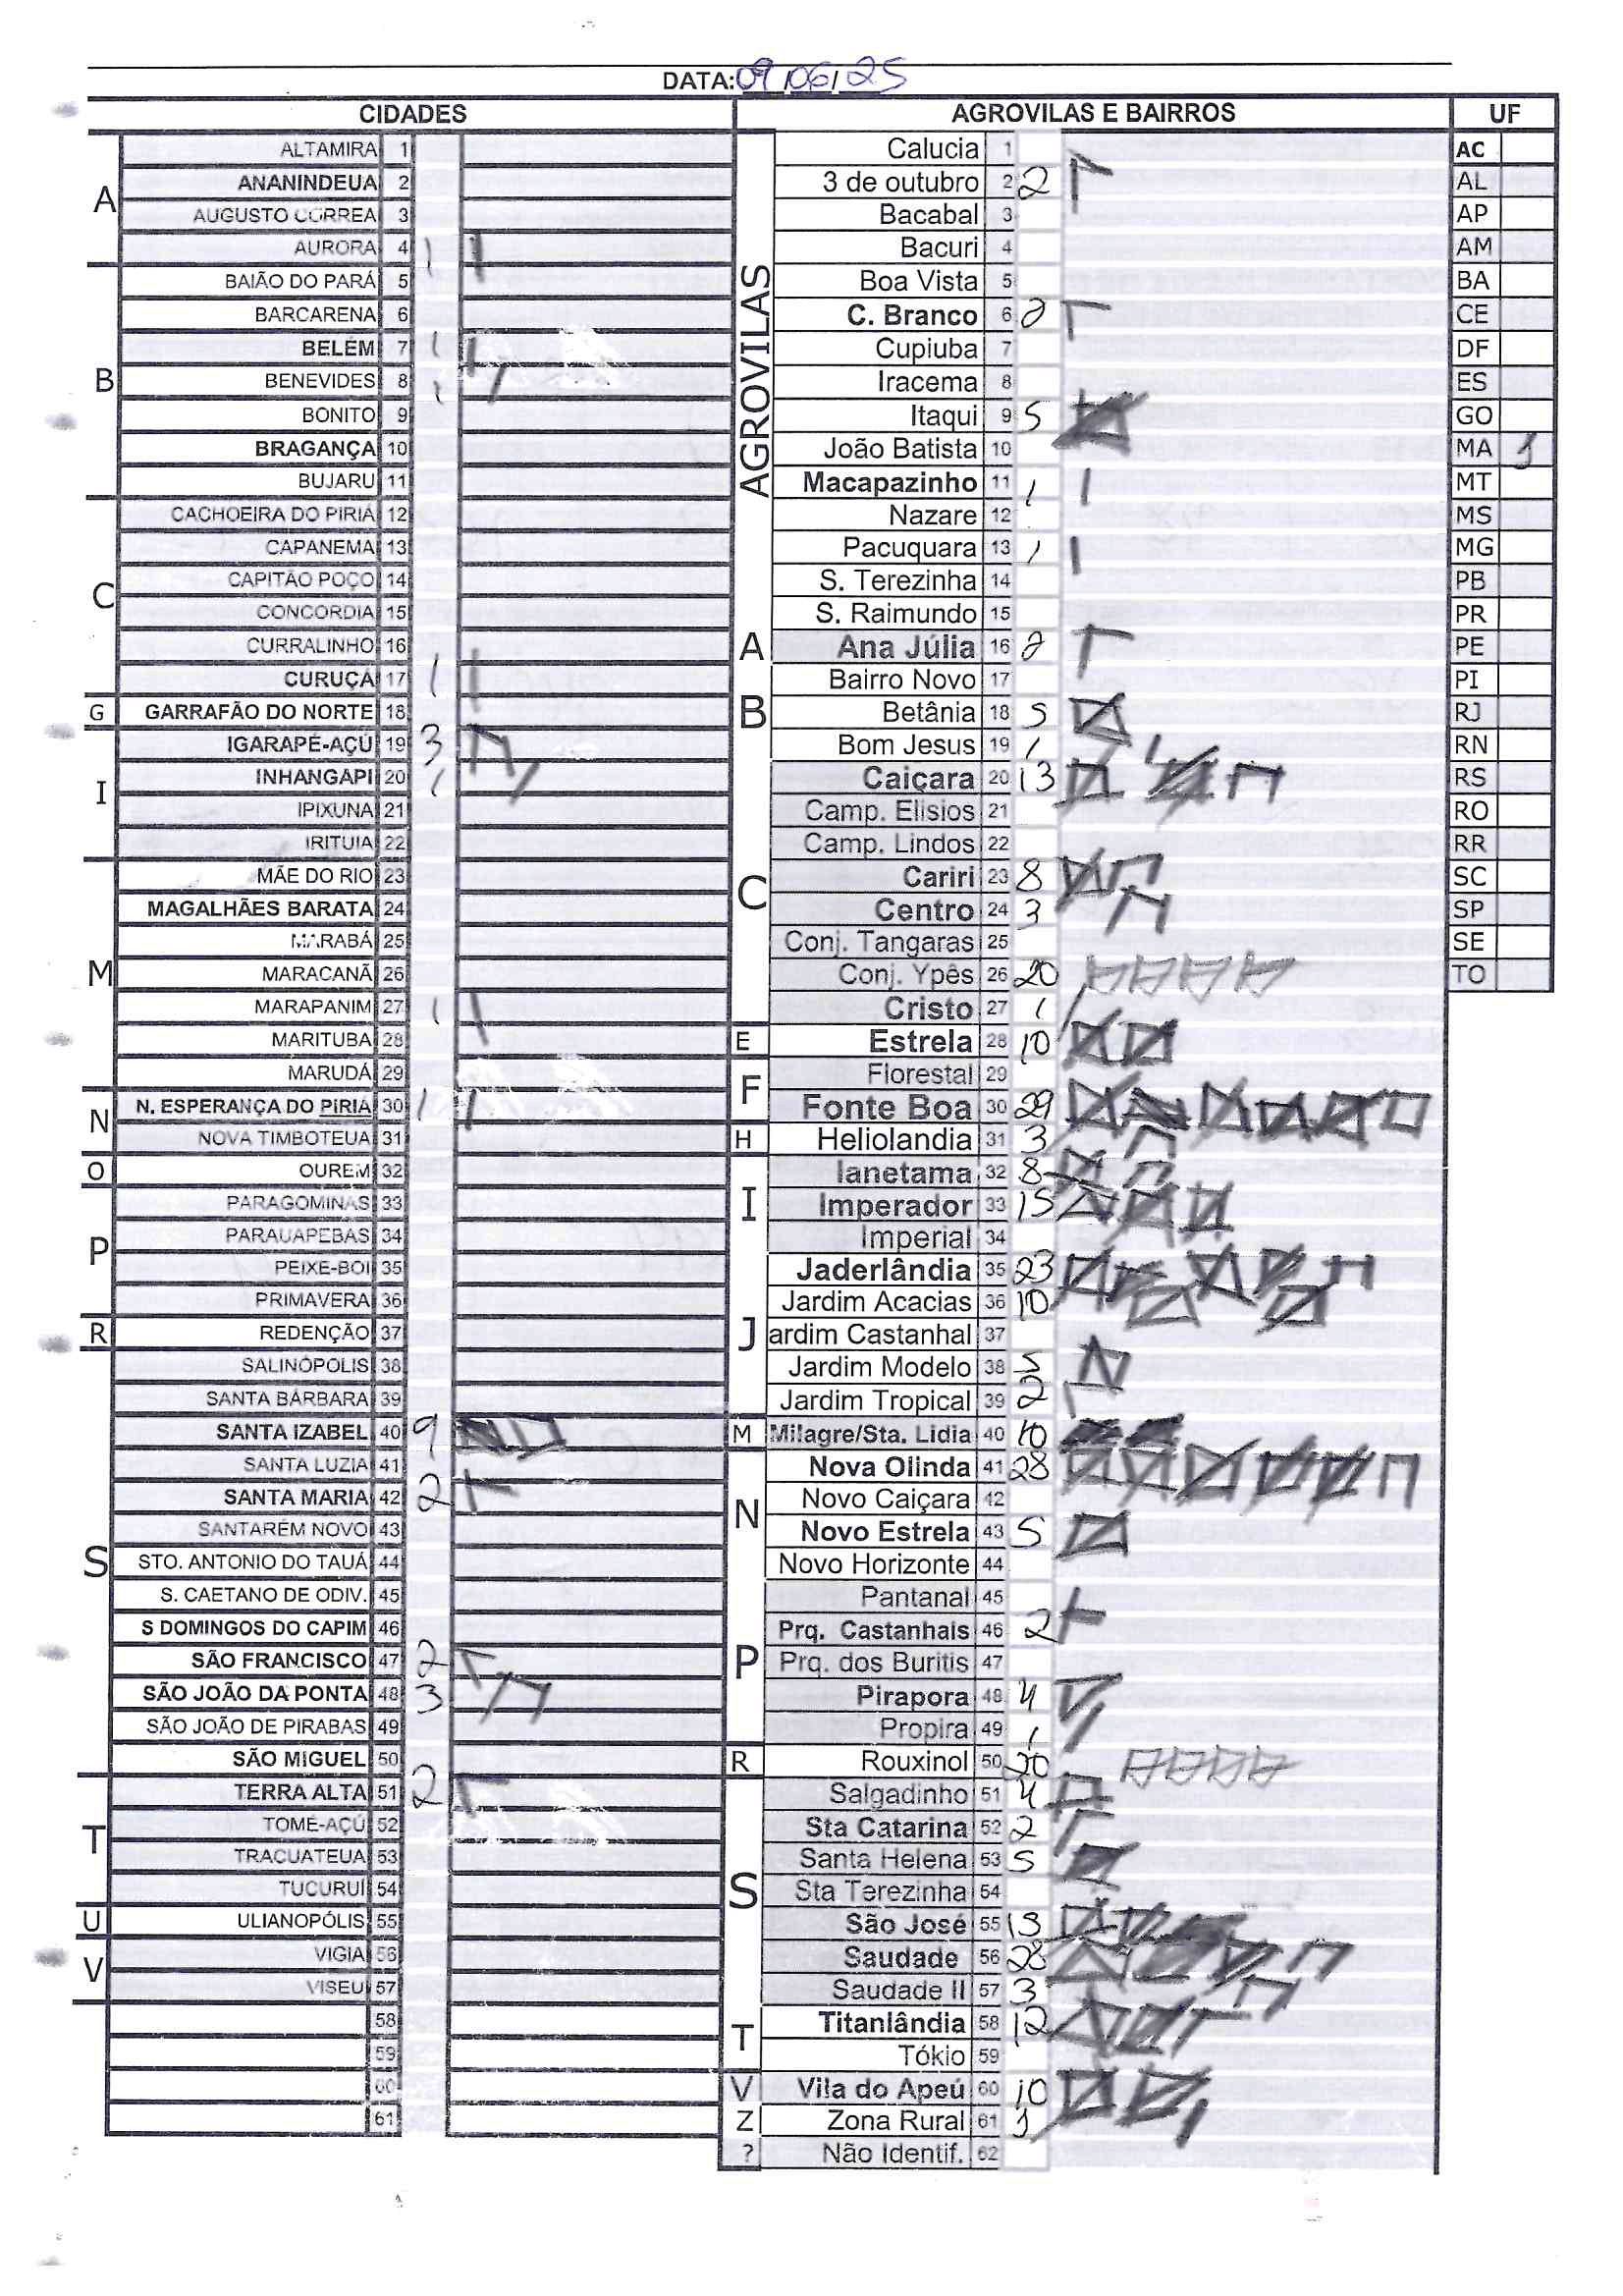 DATA: 09/06/25
CIDADES
A
ALTAMIRA 1
ANANINDEUA 2
AUGUSTO CORREA 3
AURORA 4 1
B
BAIÃO DO PARÁ 5
BARCARENA 6
BELÉM 7 1
BENEVIDES 8 1
BONITO 9
BRAGANÇA 10
BUJARU 11
C
CACHOEIRA DO PIRIÁ 12
CAPANEMA 13
CAPITÃO POÇO 14
CONCORDIA 15
CURRALINHO 16
CURUÇA 17 1
G
GARRAFÃO DO NORTE 18
I
IGARAPÉ-AÇÚ 19 3
INHANGAPI 20 1
IPIXUNA 21
IRITUIA 22
M
MÃE DO RIO 23
MAGALHÃES BARATA 24
MARABÁ 25
MARACANÃ 26
MARAPANIM 27 1
MARITUBA 28
MARUDÁ 29
N
N. ESPERANÇA DO PIRIÁ 30 1
NOVA TIMBOTEUA 31
O
OUREM 32
P
PARAGOMINAS 33
PARAUAPEBAS 34
PEIXE-BOI 35
PRIMAVERA 36
R
REDENÇÃO 37
S
SALINÓPOLIS 38
SANTA BÁRBARA 39
SANTA IZABEL 40 9
SANTA LUZIA 41
SANTA MARIA 42 2
SANTARÉM NOVO 43
STO. ANTONIO DO TAUÁ 44
S. CAETANO DE ODIV. 45
S DOMINGOS DO CAPIM 46
SÃO FRANCISCO 47 2
SÃO JOÃO DA PONTA 48 3
SÃO JOÃO DE PIRABAS 49
SÃO MIGUEL 50
T
TERRA ALTA 51 2
TOMÉ-AÇÚ 52
TRACUATEUA 53
TUCURUÍ 54
U
ULIANOPÓLIS 55
V
VIGIA 56
VISEU 57
58
59
60
61
AGROVILAS E BAIRROS
AGROVILAS
Calucia 1
3 de outubro 2 2
Bacabal 3
Bacuri 4
Boa Vista 5
C. Branco 6 2
Cupiuba 7
Iracema 8
Itaqui 9 5
João Batista 10
Macapazinho 11 1
Nazare 12
Pacuquara 13 1
S. Terezinha 14
S. Raimundo 15
A
Ana Júlia 16 2
B
Bairro Novo 17
Betânia 18 5
Bom Jesus 19 1
C
Caiçara 20 13
Camp. Elisios 21
Camp. Lindos 22
Cariri 23 8
Centro 24 3
Conj. Tangaras 25
Conj. Ypês 26 20
Cristo 27 1
E
Estrela 28 10
F
Florestal 29
Fonte Boa 30 29
H
Heliolandia 31 3
I
Ianetama 32 8
Imperador 33 15
Imperial 34
J
Jaderlândia 35 23
Jardim Acacias 36 10
ardim Castanhal 37
Jardim Modelo 38 5
Jardim Tropical 39 2
M
Milagre/Sta. Lidia 40 10
N
Nova Olinda 41 28
Novo Caiçara 42
Novo Estrela 43 5
Novo Horizonte 44
P
Pantanal 45
Prq. Castanhais 46 2
Prq. dos Buritis 47
Pirapora 48 4
Propira 49 1
R
Rouxinol 50 20
S
Salgadinho 51 4
Sta Catarina 52 2
Santa Helena 53 5
Sta Terezinha 54
São José 55 13
Saudade 56 28
Saudade II 57 3
T
Titanlândia 58 12
Tókio 59
V
Vila do Apeú 60 10
Z
Zona Rural 61 1
?
Não Identif. 62
UF
AC
AL
AP
AM
BA
CE
DF
ES
GO
MA 1
MT
MS
MG
PB
PR
PE
PI
RJ
RN
RS
RO
RR
SC
SP
SE
TO